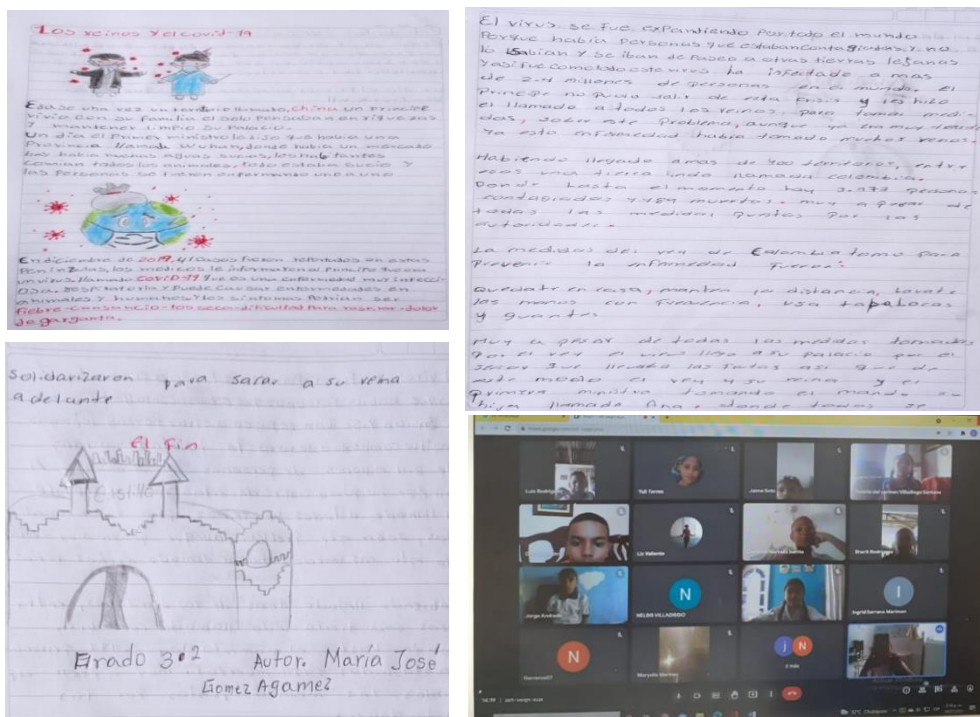 Los reinos y el covid-19
Erase una vez un territorio llamado, china un principe
vivio con su familia el solo pensaba en riquezas
y mantener limpio su Palacio.
Un dia el Primer ministro dijo que habia una
Provincia llamada Wuhan, donde habia un mercado
hay habia muchas aguas sucias, los habitantes
comian todos los animales, todo estaba sucio y
las personas se fueron enfermando una a una
En diciembre de 2019, 41 casos fueron reportados en estas
los medicos le informaron al Principe que era
un virus llamado CoviD-19 que es una enfermedad muy infecci-
osa, respiratoria y puede causar enfermedades en
animales y humanos y los sintomas Podrian ser
fiebre-cansancio-tos seca-dificultad para respirar-dolor
de garganta.
El virus se fue expandiendo Por todo el mundo
Porque habia personas que estaban contagiadas y no
lo sabian y se iban de Paseo a otras tierras lejanas
y asi fue como todo este virus ha infectado a mas
de 2.4 millones de personas en el mundo. El
Principe no pudo salir de esta crisis y les hiso
el llamado a todos los reinos, para tomar medi-
das, sobre este problema, aunque ya era muy tarde
ya esta enfermedad habia tomado muchos reinos.
Habiendo llegado a mas de 400 territorios, entre
esos una tierra linda llamada colombia.
Donde hasta el momento hay 3.977 personas
contagiadas y 189 muertos. muy a pesar de
todas las medidas puestas por las
autoridades.
La medidas del rey de Colombia tomo para
prevenir la enfermedad fueron:
Quedate en casa, manten la distancia, lavate
las manos con frecuencia, usa tapabocas
y guantes
Muy a pesar de todas las medidas tomadas
por el rey el virus llego a su palacio por el
señor que llevaba las frutas asi que de
este modo el rey y su reina y el
primera ministro tomando el mando su
hija llamada Ana. donde todos se
Solidarizaron para sacar a su reina
adelante
El Fin
Castillo
Grado 3·2 Autor. María José
Gomez Agamez
Yuli Torres
Liz Valiente
Jorge Andres
NELBIS VILLADIEGO
N
I
Ingrid Serrano Martinez
N
j N
2 más